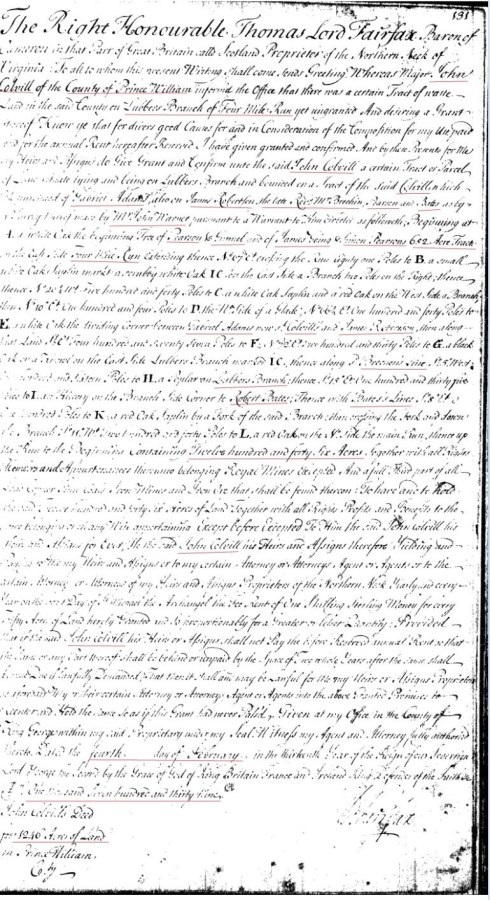 131
The Right Honourable Thomas Lord Fairfax Baron of
Cameron in that Part of Great Britain calld Scotland Proprietor of the Northern Neck of
Virginia To all to whom this present Writing shall come sends Greeting Whereas Major John
Colvill of the County of Prince William informd the Office that there was a certain Tract of waste
Land in the said County on Lubbers Branch of Four Mile Run yet ungranted And desiring a Grant
thereof Know ye that for divers good Causes for and in Consideration of the Composition for my Use paid
and for the annual Rent hereafter Reserved I have given granted and confirmed And by these Presents for Me
my Heirs and Assigns do Give Grant and Confirm unto the said John Colvill a certain Tract or Parcel
of Land Scituate lying and being on Lubbers Branch and bounded on a Tract of the said Colvill which
he purchased of Gabriel Adams also on James Robertson, the late Revd Mr Brechin, Pearson and Bates as by
a Survey thereof made by Mr John Warner pursuant to a Warrant to him directed as followeth, Beginning at
A a white Oak the beginning Tree of Pearson & Grimal and of James being Simon Pearsons 652 Acre Tract
on the East Side Four Mile Run Extending thence crossing the Run Eighty one Poles to B a small
white Oak Saplin markt a remby white Oak IC on the East side a Branch two Poles on the Right, thence
thence five hundred and forty Poles to C a white Oak Saplin and a red Oak on the West Side a Branch
then One hundred and four Poles to D the Wt Side of a Glade; One hundred and forty Poles to
E a white Oak the dividing Corner between Gabriel Adams now sd Colvills and James Robertson, then along
that Land four hundred and seventy Seven Poles to F, two hundred and thirty Poles to G a black
Oak on a on the East Side Lubbers Branch marked IC, thence along Brechins Line
hundred and Sixteen Poles to H a Poplar on Lubbers Branch; thence One hundred and thirty five
Poles to I a Hiccory on the Branch Side Corner to Robert Bates; Thence with Bates's Line
hundred Poles to K a red Oak Saplin by a Fork of the said Branch; then crossing the Fork and down
the Branch two hundred and forty Poles to L a red Oak on the N. Side the main Run, thence up
the Run to the Beginning Containing Twelve hundred and forty Six Acres Together with all Rights
Members and Appurtenances thereunto belonging Royal Mines Excepted And a full third part of all
Lead Copper Tinn Coals Iron Mines and Iron Ore that shall be found thereon To have and to hold
the said Twelve hundred and forty six Acres of Land Together with all Rights Profits and Benefits to the
same belonging or in any Wise appertaining Except before Excepted To Him the said John Colvill his
Heirs and Assigns for Ever, He the said John Colvill his Heirs and Assigns therefore Yielding and
Paying to Me my Heirs and Assigns or to my certain Attorney or Attorneys Agent or Agents or to the
certain Attorney or Attorneys of my Heirs and Assigns Proprietors of the Northern Neck Yearly and every
Year on the Feast Day of St Michael the Archangel the Fee Rent of One Shilling Sterling Money for every
Fifty Acres of Land hereby Granted and so proportionably for a Greater or lesser Quantity; Provided
that if the said John Colvill his Heirs or Assigns shall not Pay the before Reserved annual Rent so that
the same or any Part thereof shall be behind or unpaid by the Space of two whole Years after the same shall
become Due if Lawfully Demanded That then it shall and may be Lawful for Me my Heirs or Assigns Proprietors
as aforesaid My or their certain Attorney or Attorneys Agent or Agents into the above Granted Premises to
Reenter and Hold the same So as if this Grant had never Passd. Given at my Office in the County of
King George within my said Proprietary under my Seal Witness my Agent and Attorney fully authorized
thereto Dated the fourth day of February in the thirteenth Year of the Reign of our Sovereign
Lord George the Second by the Grace of God of Great Britain France and Ireland King Defender of the Faith &c
AD One thousand Seven hundred and thirty Nine
Fairfax
John Colvills Deed
for 1246 Acres of Land
in Prince William
Coty